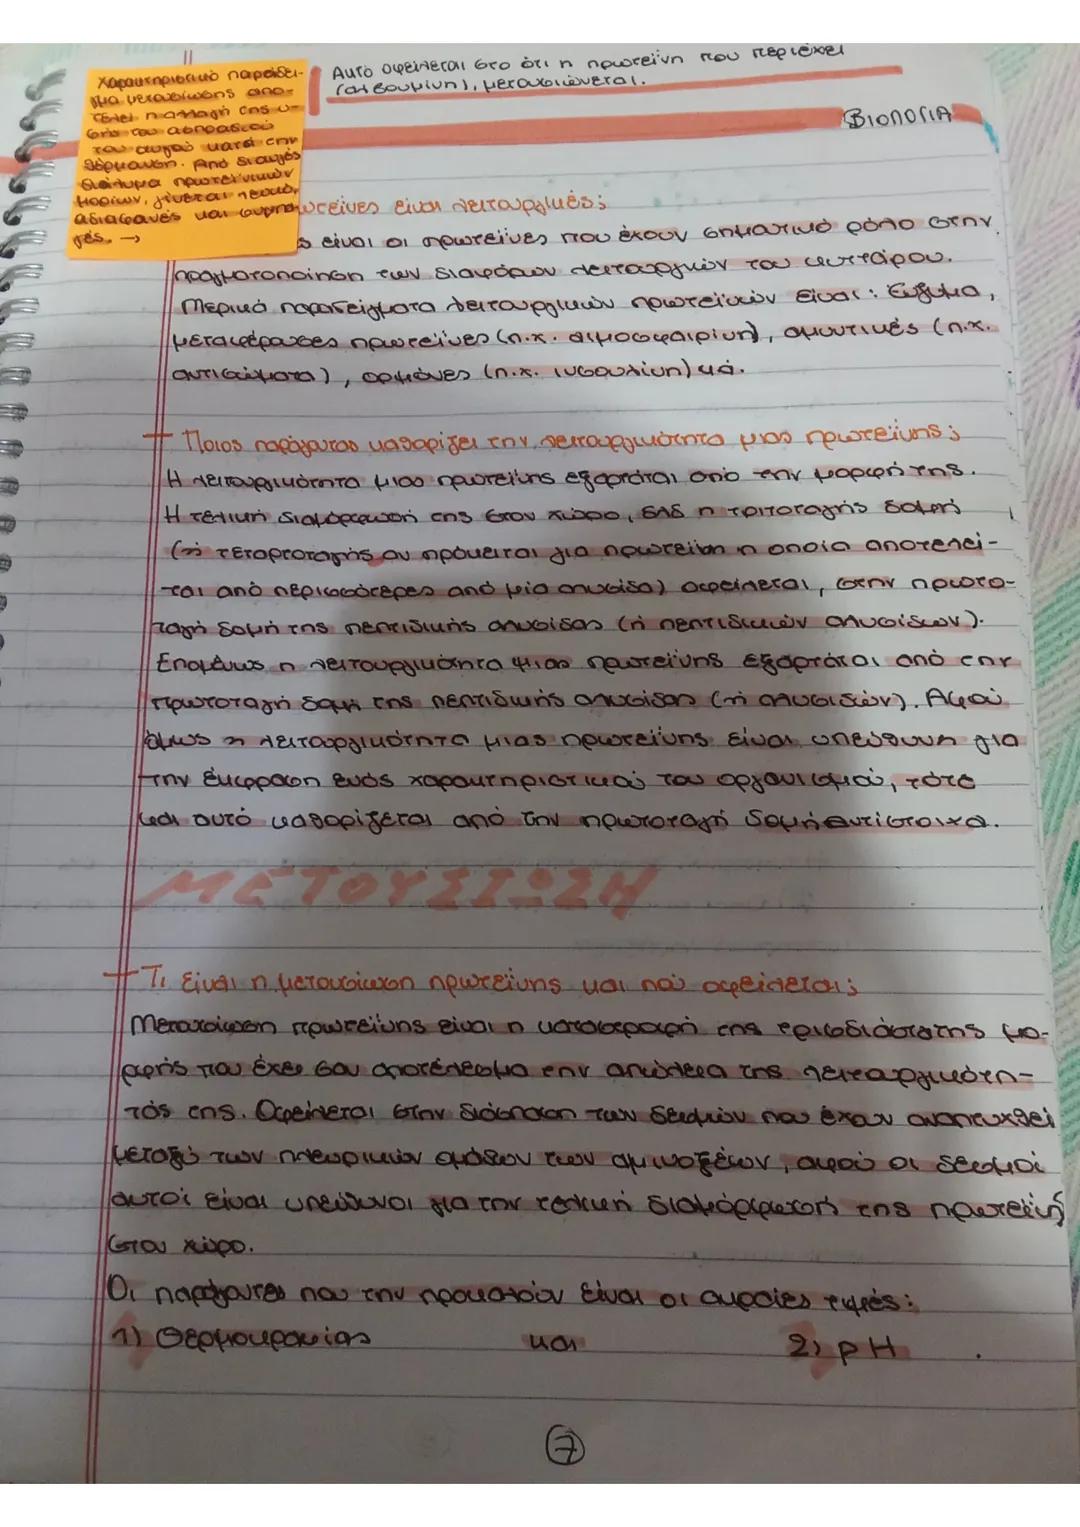 Χαρακτηριστικό παράδει-
γμα μετουσίωσης απο-
τελεί η αλλαγή της υ-
φής του ασπραδιού
του αυγού κατά την
θέρμανση. Από διαυγές
διάλυμα πρωτεϊνικών
μορίων, γίνεται λευκό,
αδιαφανές και συμπα-
γές. →
Αυτό οφείλεται στο ότι η πρωτεΐνη που περιέχει
(αλβουμίνη), μετουσιώνεται.
ΒΙΟΛΟΓΙΑ
ωτεϊνες είναι λειτουργικές;
ς είναι οι πρωτεϊνες που έχουν σημαντικό ρόλο στην
πραγματοποίηση των διαφόρων λειτουργιών του κυττάρου.
Μερικά παραδείγματα λειτουργικών πρωτεϊνών είναι: Ένζυμα,
μεταφέρουσες πρωτεϊνες (π.χ. αιμοσφαιρίνη), αμυντικές (π.χ.
αντισώματα), ορμόνες (π.χ. ινσουλίνη) κά.
+ Ποιος παράγοντας καθορίζει την λειτουργικότητα μιας πρωτεϊνης;
Η λειτουργικότητα μιας πρωτεϊνης εξαρτάται από την μορφή της.
Η τελική διαμόρφωσή της στον χώρο, δηλδ η τριτοταγής δομή
(ή τεταρτοταγής αν πρόκειται για πρωτεϊνη η οποία αποτελεί-
ται από περισσότερες από μία αλυσίδα) οφείλεται, στην πρωτο-
ταγή δομή της πεπτιδικής αλυσίδας (ή πεπτιδικών αλυσίδων).
Επομένως η λειτουργικότητα μιας πρωτεϊνης εξαρτάται από την
πρωτοταγή δομή της πεπτιδικής αλυσίδας (ή αλυσιδών). Αφού
όμως η λειτουργικότητα μιας πρωτεϊνης είναι υπεύθυνη για
την έκφραση ενός χαρακτηριστικού του οργανισμού, τότε
και αυτό καθορίζεται από την πρωτοταγή δομή αντίστοιχα.
ΜΕΤΟΥΣΙΩΣΗ
+ Τι είναι η μετουσίωση πρωτεϊνης και πού οφείλεται;
Μετουσίωση πρωτεϊνης είναι η καταστροφή της τρισδιάστατης μο-
ρφής που έχει σαν αποτέλεσμα την απώλεια της λειτουργικότη-
τάς της. Οφείλεται στην διάσπαση των δεσμών που έχουν αναπτυχθεί
μεταξύ των πλευρικών ομάδων των αμινοξέων, αφού οι δεσμοί
αυτοί είναι υπεύθυνοι για την τελική διαμόρφωση της πρωτεϊνης
στον χώρο.
Οι παράγοντες που την προκαλούν είναι οι ακραίες τιμές:
1) Θερμοκρασίας και 2) pH .
7